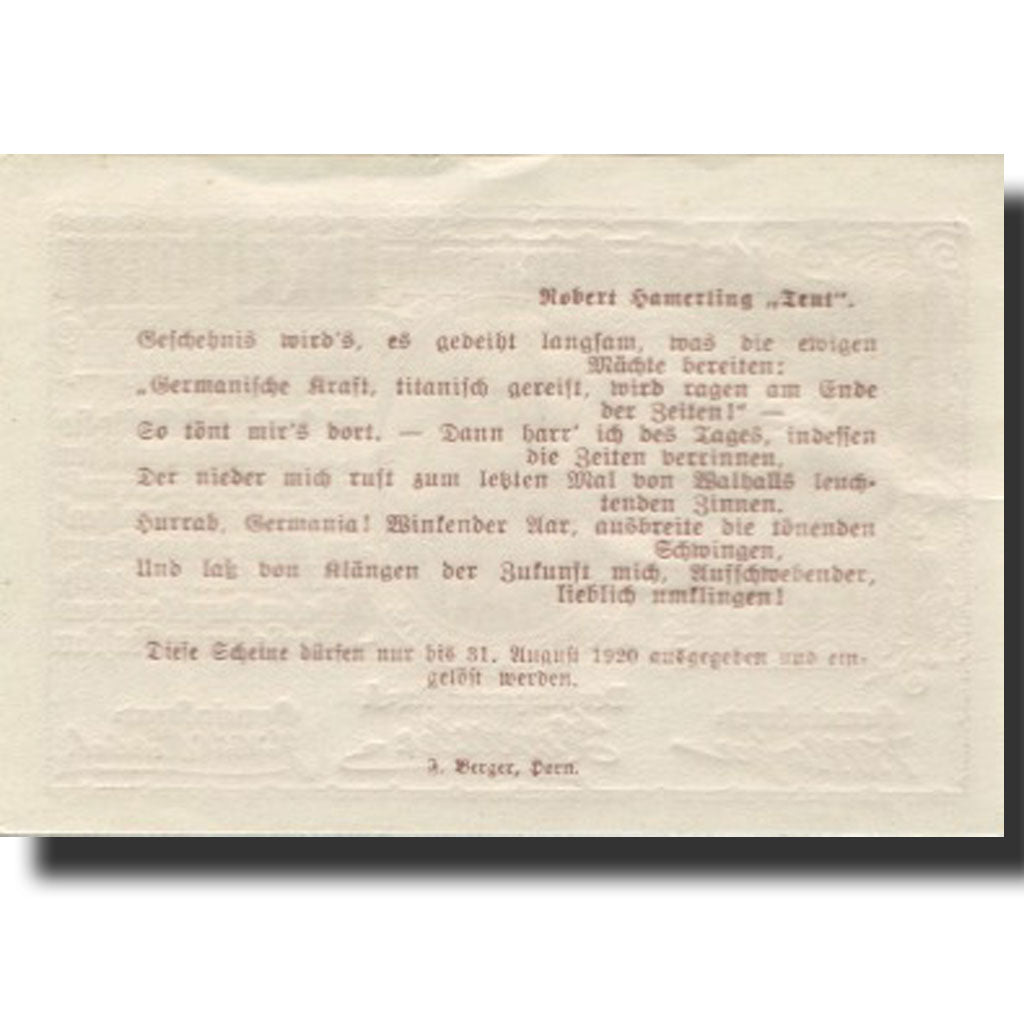 Robert Hamerling „Teut“.
Geschehnis wird's, es gedeiht langsam, was die ewigen
Mächte bereiten:
„Germanische Kraft, titanisch gereift, wird ragen am Ende
der Zeiten!“ —
So tönt mir's dort. — Dann harr' ich des Tages, indessen
die Zeiten verrinnen,
Der nieder mich ruft zum letzten Mal von Walhalls leuch-
tenden Zinnen.
Hurrah, Germania! Winkender Aar, ausbreite die tönenden
Schwingen,
Und laß von Klängen der Zukunft mich, Aufschwebender,
lieblich umklingen!
Diese Scheine dürfen nur bis 31. August 1920 ausgegeben und ein-
gelöst werden.
J. Berger, Horn.